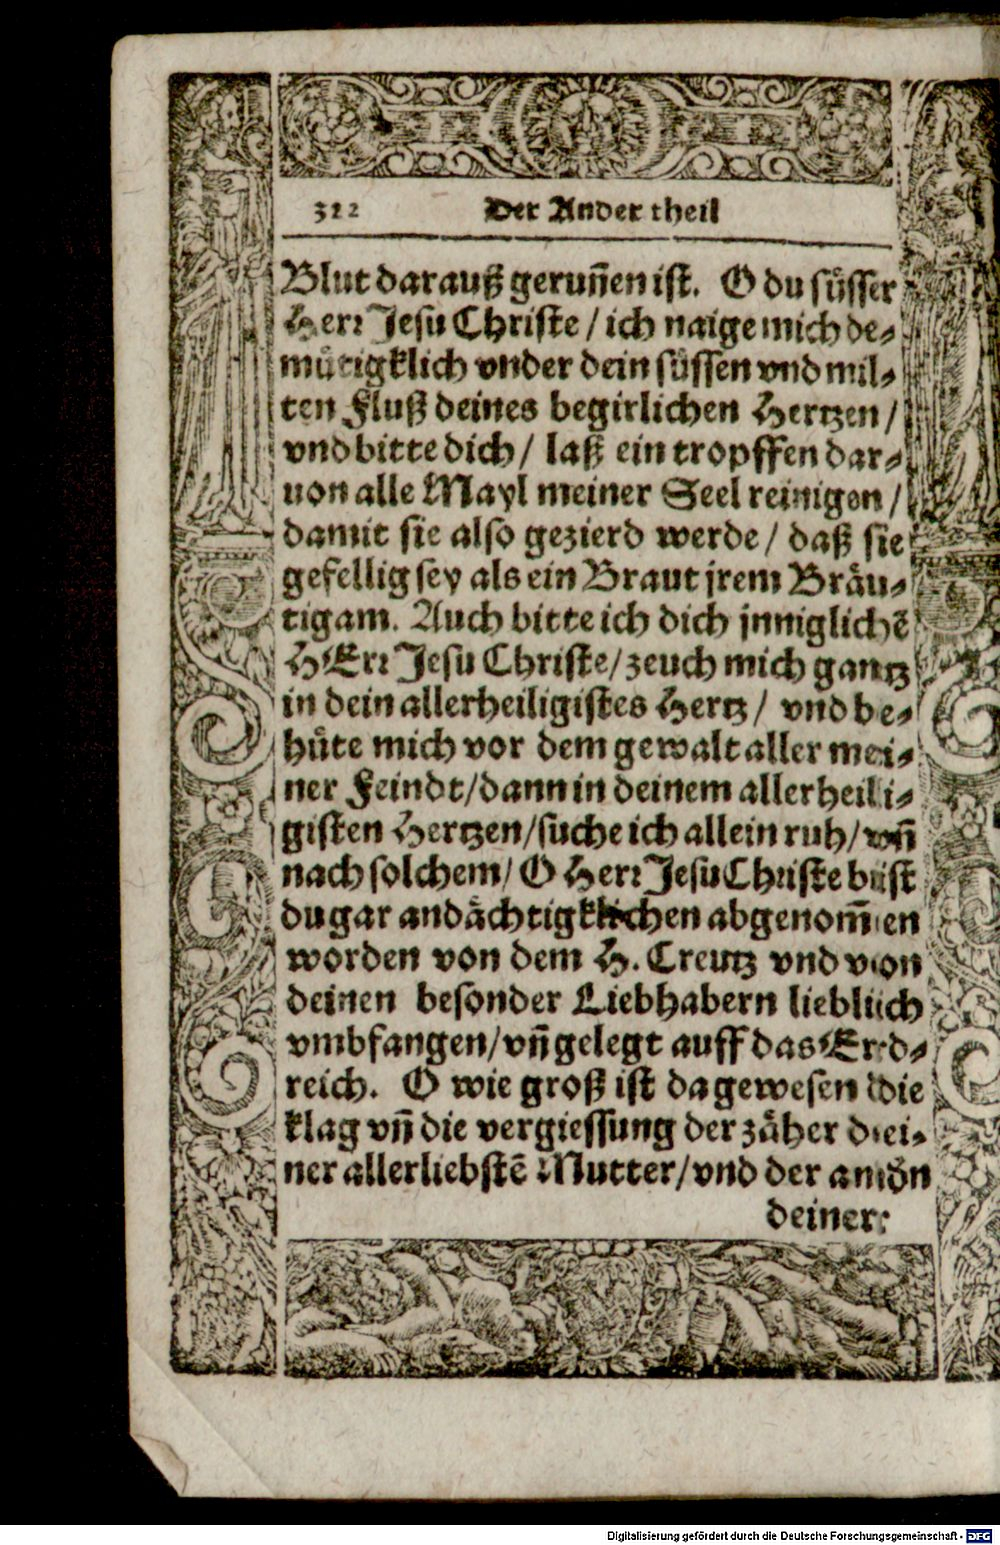 312 Der Ander theil
Blut darauß geruñen ist. O du süsser
Herr Jesu Christe / ich naige mich de⸗
mütigklich vnder dein süssen vnd mil⸗
ten Fluß deines begirlichen Hertzen /
vnd bitte dich / laß ein tropffen dar⸗
uon alle Mayl meiner Seel reinigen /
damit sie also gezierd werde / daß sie
gefellig sey als ein Braut jrem Bräu⸗
tigam. Auch bitte ich dich jnniglichẽ
HErr Jesu Christe / zeuch mich gantz
in dein allerheiligistes Hertz / vnd be⸗
hüte mich vor dem gewalt aller mei⸗
ner Feindt / dann in deinem allerheili⸗
gisten Hertzen / suche ich allein ruh / vñ
nach solchem / O Herr Jesu Christe bist
du gar andächtigklichen abgenom̃en
worden von dem H. Creutz vnd von
deinen besonder Liebhabern lieblich
vmbfangen / vñ gelegt auff das Erd⸗
reich. O wie groß ist da gewesen die
klag vñ die vergiessung der zäher dei⸗
ner allerliebstẽ Mutter / vnd der andn
deiner:
Digitalisierung gefördert durch die Deutsche Forschungsgemeinschaft - DFG